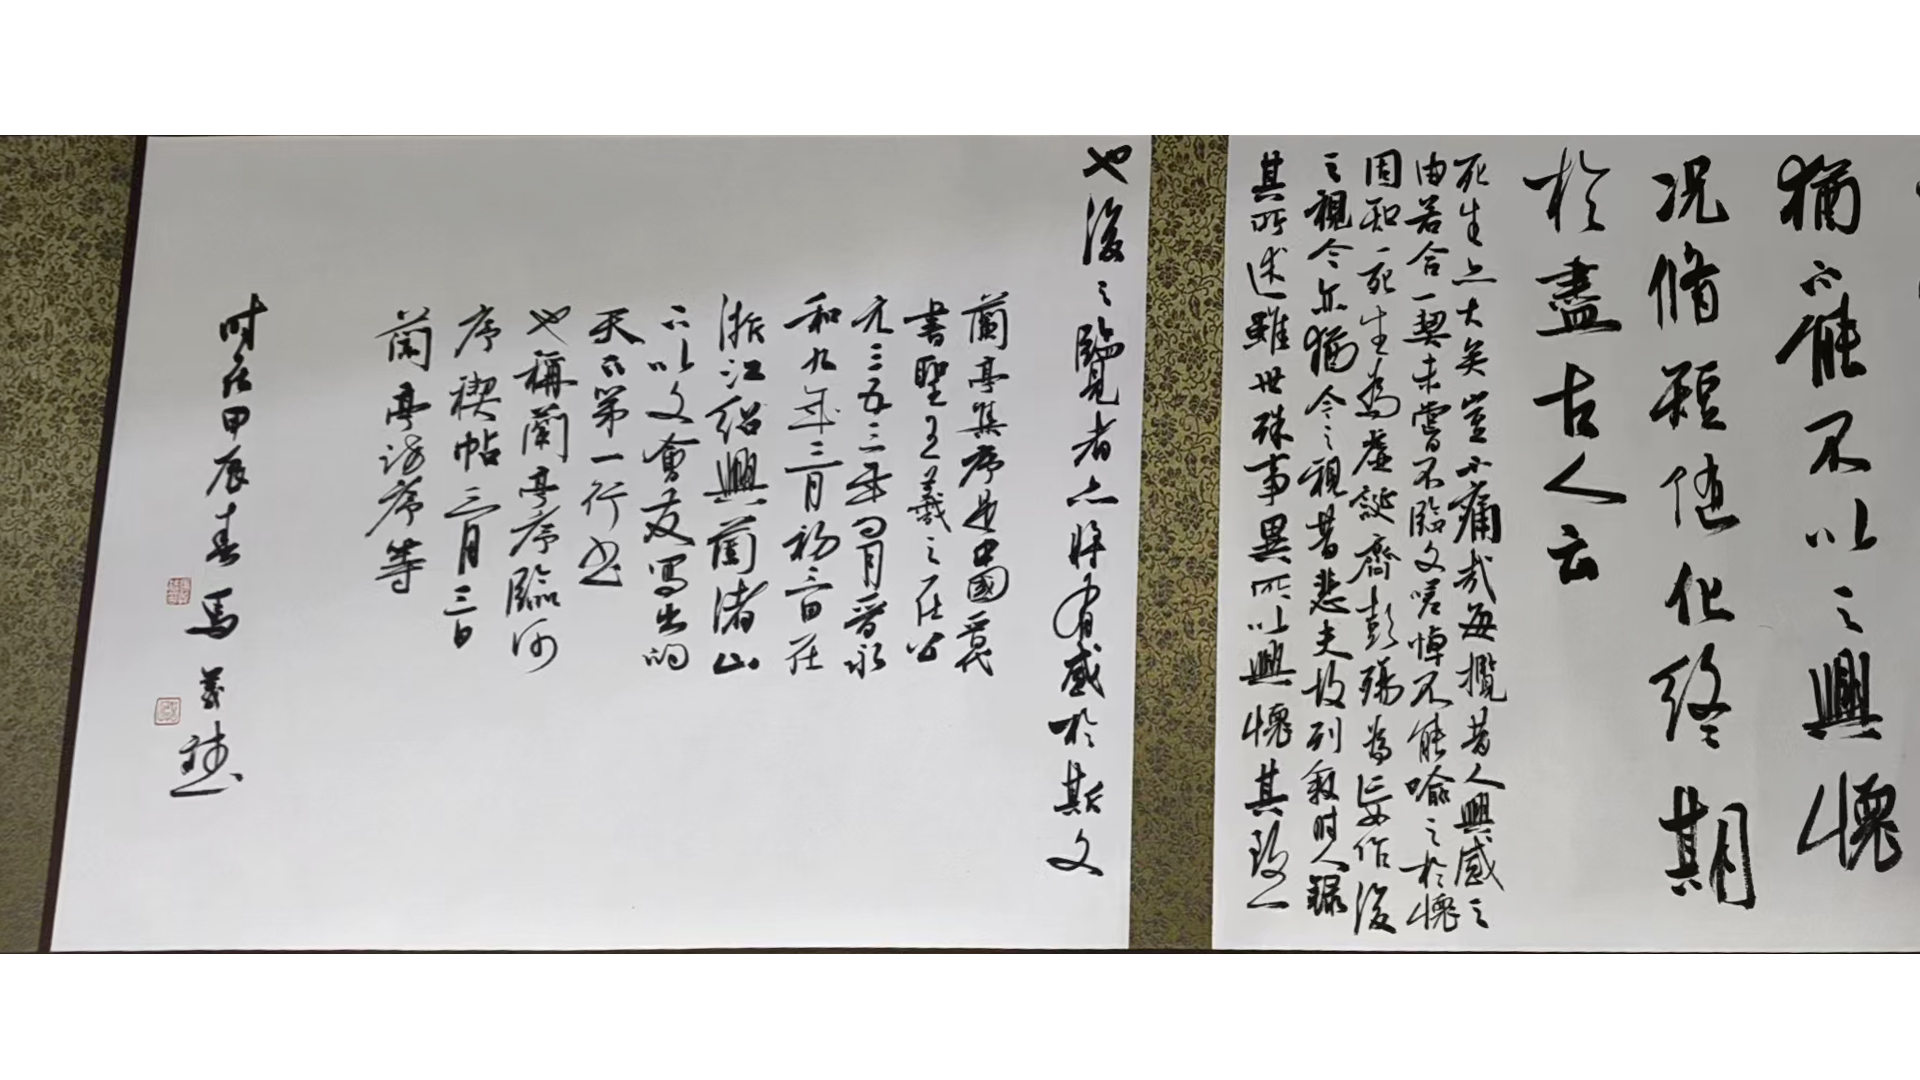 猶不能不以之興懷
況脩短随化終期
於盡古人云
死生亦大矣豈不痛哉每攬昔人興感之
由若合一契未嘗不臨文嗟悼不能喻之於懷
固知一死生為虛誕齊彭殤為妄作後
之視今亦猶今之視昔悲夫故列叙时人錄
其所述雖世殊事異所以興懷其致一
也後之覽者亦将有感於斯文
蘭亭集序是中國晋代
書聖王羲之在公
元三五三年月晋永
和九年三月初三日在
浙江绍興蘭渚山
下以文會友写出的
天下第一行书
也稱蘭亭序臨河
序禊帖三月三日
蘭亭诗序等
时在甲辰春馬義